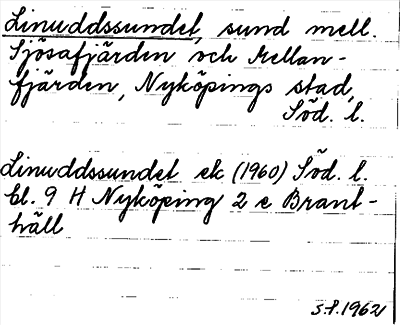 Linuddssundet, sund mell.
Sjösafjärden och Mellan-
fjärden, Nyköpings stad,
Söd. l.
Linuddssundet ek (1960) Söd. l.
Bl. 9 H Nyköping 2 e Brant-
häll
S.P. 1962